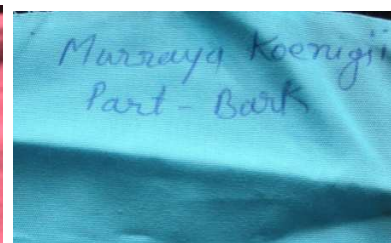 Murraya Koenigii
Part - Bark